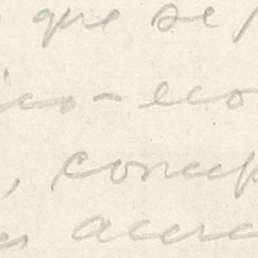 que se
ico-eco
, concep
acerc